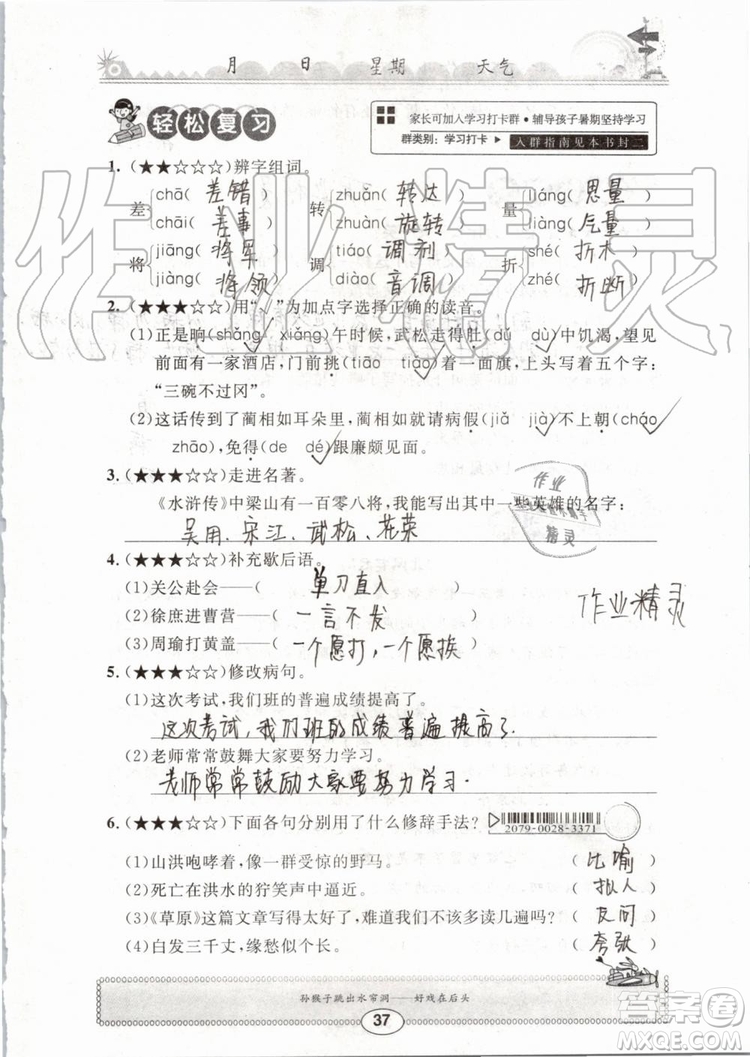 月 日 星期 天气
轻松复习
家长可加入学习打卡群·辅导孩子暑期坚持学习
群类别：学习打卡 ▶ 入群指南见本书封二
1.（★★☆☆☆）辨字组词。
差 chā（差错） 转 zhuǎn（转达） 量 liáng（思量）
chāi（差事） zhuàn（旋转） liàng（气量）
将 jiāng（将军） 调 tiáo（调剂） 折 shé（折木）
jiàng（将领） diào（音调） zhé（折断）
2.（★★★☆☆）用“√”为加点字选择正确的读音。
（1）正是晌（shǎng√ xiǎng）午时候，武松走得肚（dǔ dù√）中饥渴，望见
前面有一家酒店，门前挑（tiāo tiǎo√）着一面旗，上头写着五个字：
“三碗不过冈”。
（2）这话传到了蔺相如耳朵里，蔺相如就请病假（jiǎ jià√）不上朝（cháo√
zhāo），免得（de dé√）跟廉颇见面。
3.（★★★☆☆）走进名著。
《水浒传》中梁山有一百零八将，我能写出其中一些英雄的名字：
吴用、宋江、武松、花荣
4.（★★★☆☆）补充歇后语。
（1）关公赴会——（ 单刀直入 ）
（2）徐庶进曹营——（ 一言不发 ）
（3）周瑜打黄盖——（ 一个愿打，一个愿挨 ）
作业精灵
5.（★★★☆☆）修改病句。
（1）这次考试，我们班的普遍成绩提高了。
这次考试，我们班的成绩普遍提高了.
（2）老师常常鼓舞大家要努力学习。
老师常常鼓励大家要努力学习.
6.（★★★☆☆）下面各句分别用了什么修辞手法？
2079-0028-3371
（1）山洪咆哮着，像一群受惊的野马。 （比喻）
（2）死亡在洪水的狞笑声中逼近。 （拟人）
（3）《草原》这篇文章写得太好了，难道我们不该多读几遍吗？ （反问）
（4）白发三千丈，缘愁似个长。 （夸张）
孙猴子跳出水帘洞——好戏在后头
37
作业精灵
答案卷